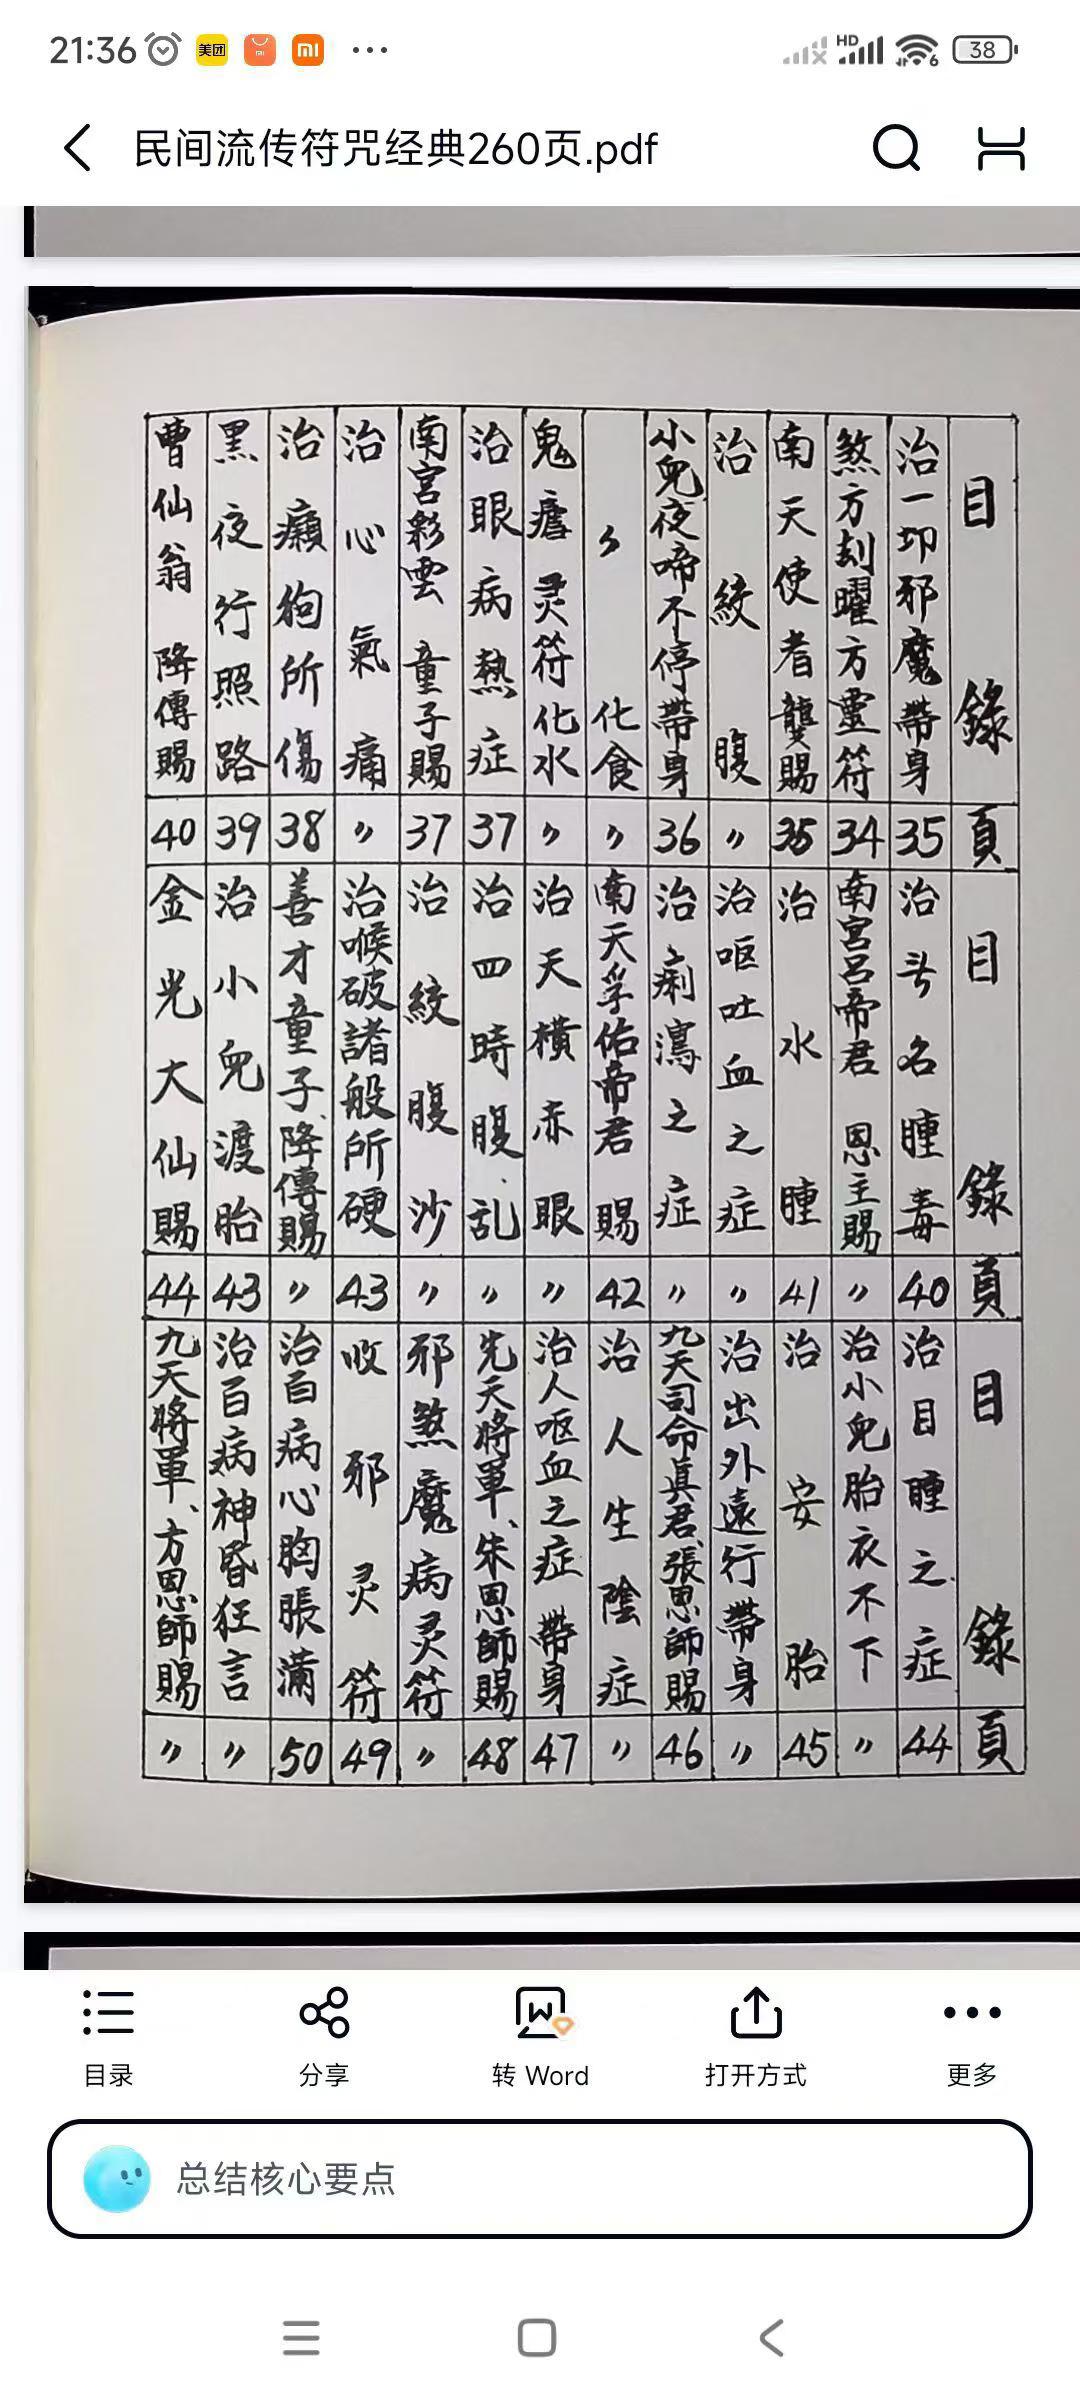 21:36 美团 mi mi ... HD 6 38
民间流传符咒经典260页.pdf
目錄 頁
治一切邪魔帶身 35
煞方刻曜方靈符 34
南天使者龔賜 35
治絞腹 〃
小兒夜啼不停帶身 36
〃 化食 〃
鬼瘧灵符化水 〃
治眼病熱症 37
南宮彩雲童子賜 37
治心氣痛 〃
治癩狗所傷 38
黑夜行照路 39
曹仙翁 降傳賜 40
目錄 頁
治夛名腫毒 40
南宮呂帝君 恩主賜 〃
治水腫 41
治嘔吐血之症 〃
治痢瀉之症 〃
南天孚佑帝君賜 42
治天橫赤眼 〃
治四時腹乱 〃
治絞腹沙 〃
治喉破諸般所硬 43
善才童子、降傳賜 〃
治小兒渡胎 43
金光大仙賜 44
目錄 頁
治目腫之症 44
治小兒胎衣不下 〃
治安胎 45
治出外遠行帶身 〃
九天司命真君、張恩師賜 46
治人生陰症 〃
治人嘔血之症帶身 47
先天將軍、朱恩師賜 48
邪煞魔病灵符 〃
收邪灵符 49
治百病心胸脹滿 50
治百病神昏狂言 〃
九天將軍、方恩師賜 〃
目录 分享 转 Word 打开方式 更多
总结核心要点